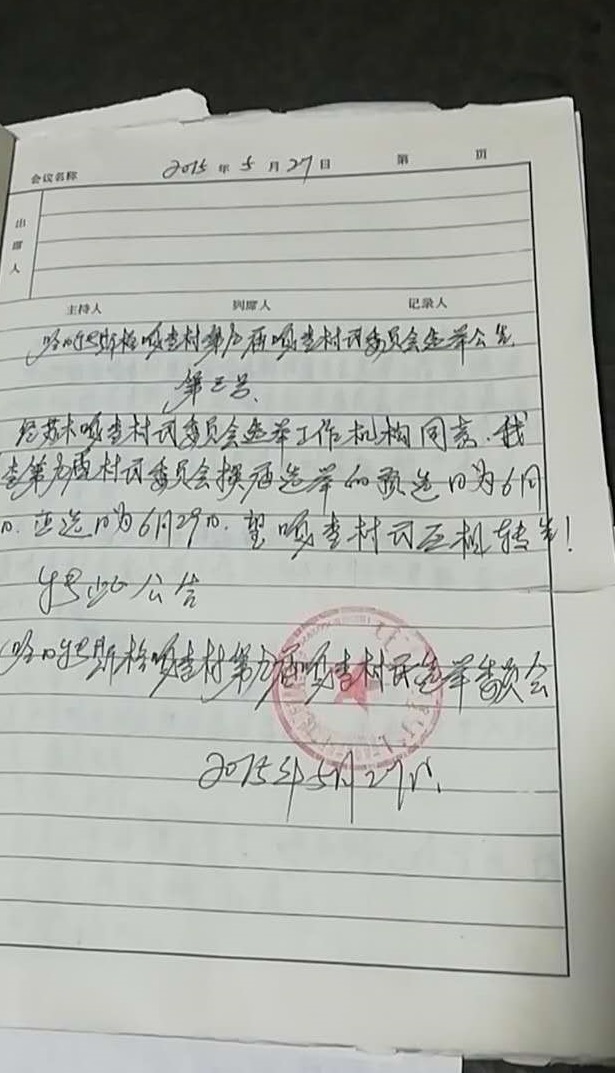 会议名称 2015年5月27日 第 页
出席人
主持人 列席人 记录人
哈日斯格嘎查村第九届嘎查村民委员会选举公告
第三号
经苏木嘎查村民委员会选举工作机构同意,我
查第九届村民委员会换届选举的预选日为6月
日,正选日为6月29日.望嘎查村民互相转告!
特此公告
嘎查村第九届嘎查村民选举委员会
2015年5月27日